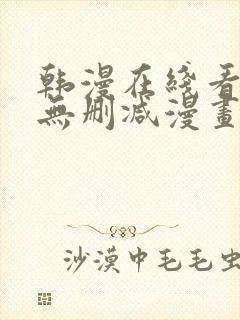 韩漫在线看
無删减漫畫
沙漠中毛毛虫